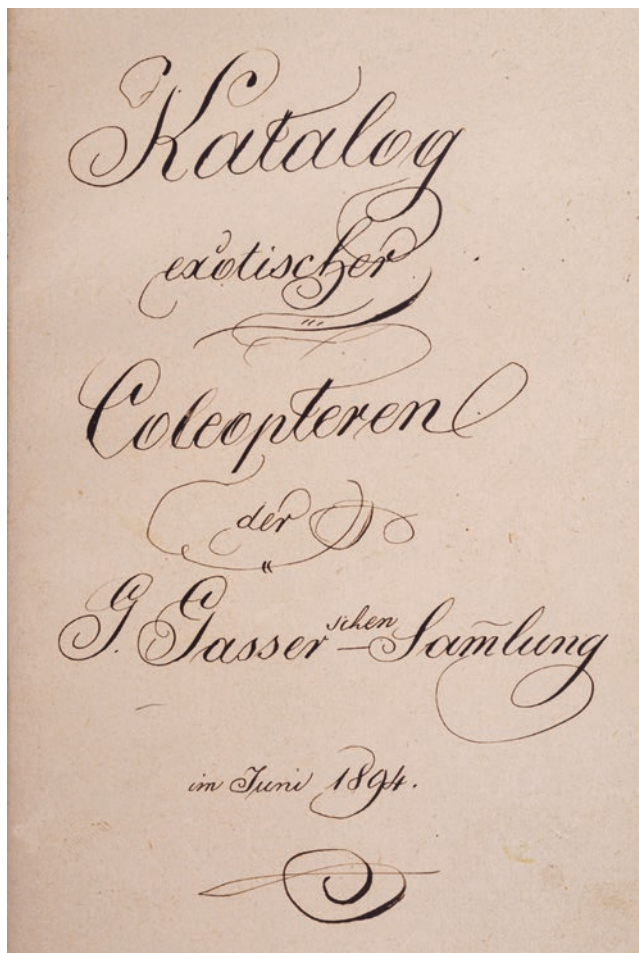 Katalog
exotischer
Coleopteren
der
G. Gasser'schen-Sam̄lung
im Juni 1894.